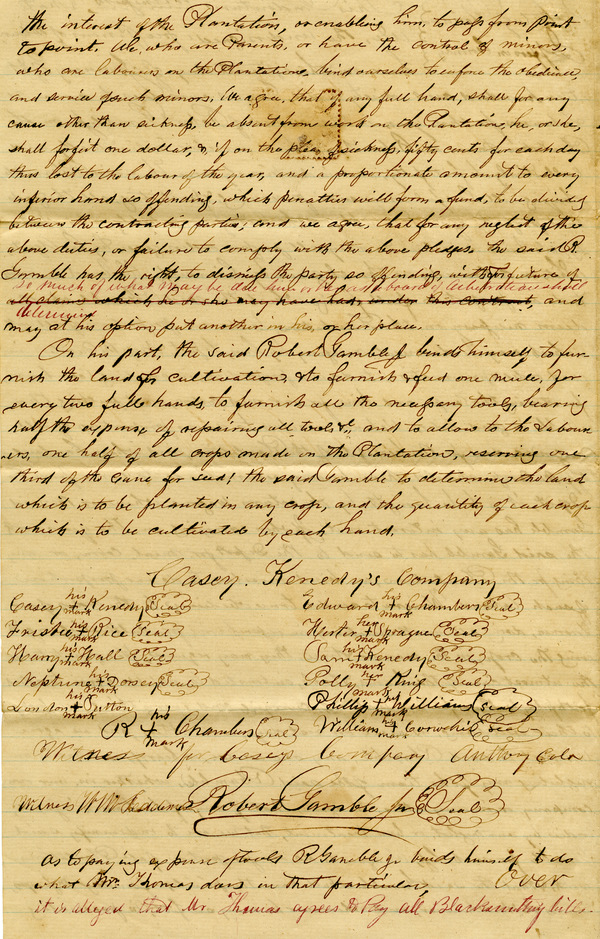 the interest of the Plantation, or enabling him, to pass from point
to point. We, who are Parents, or have the control of minors,
who are labourers on the Plantation, bind ourselves to enforce the obedience,
and service of such minors. We agree, that if any full hand, shall for any
cause other than sickness, be absent from work on the Plantation, he, or she,
shall forfeit one dollar, & if on the plea of sickness, fifty cents for each day
thus lost to the labour of the year, and a proportionate amount to every
inferior hand so offending, which penalties will form a fund, to be divided
between the contracting parties; and we agree, that for any neglect of the
above duties, or failure to comply with the above pledges, the said R.
Gamble has the right, to dismiss the party so offending, with forfeiture of
so much of what may be due him or her as board of arbitration shall
all claims which he or she may have had, under this contract, and
determine
may at his option put another in his, or her place.
On his part, the said Robert Gamble Jr binds himself to fur-
nish the land for cultivation, & to furnish & feed one mule, for
every two full hands, to furnish all the necessary tools, bearing
half the expense of repairing all tools &c, and to allow to the Labour-
ers, one half of all crops made on the Plantation, reserving one
third of the Cane for seed; the said Gamble to determine the land
which is to be planted in any crop, and the quantity of each crop
which is to be cultivated by each hand.
Casey. Kenedy's Company
Casey his + mark Kenedy Seal
Edward his + mark Chambers Seal
his + mark Rice Seal
Hester her + mark Sprague Seal
Harry his + mark Hall Seal
Sam his + mark Kenedy Seal
Neptune his + mark Dorsey Seal
Polly her + mark King Seal
London + mark Sutton
Phillip his + mark Williams Seal
R his + mark Chambers Seal
William + mark Seal
Witness for Caseys Company Anthony Cole
Witness W W Robert Gamble Jr Seal
As to paying expense of tools R Gamble Jr binds himself to do
what Wm Thomas does in that particular, Over
it is alleged that Mr. Thomas agrees to Pay all Blacksmithing bills.